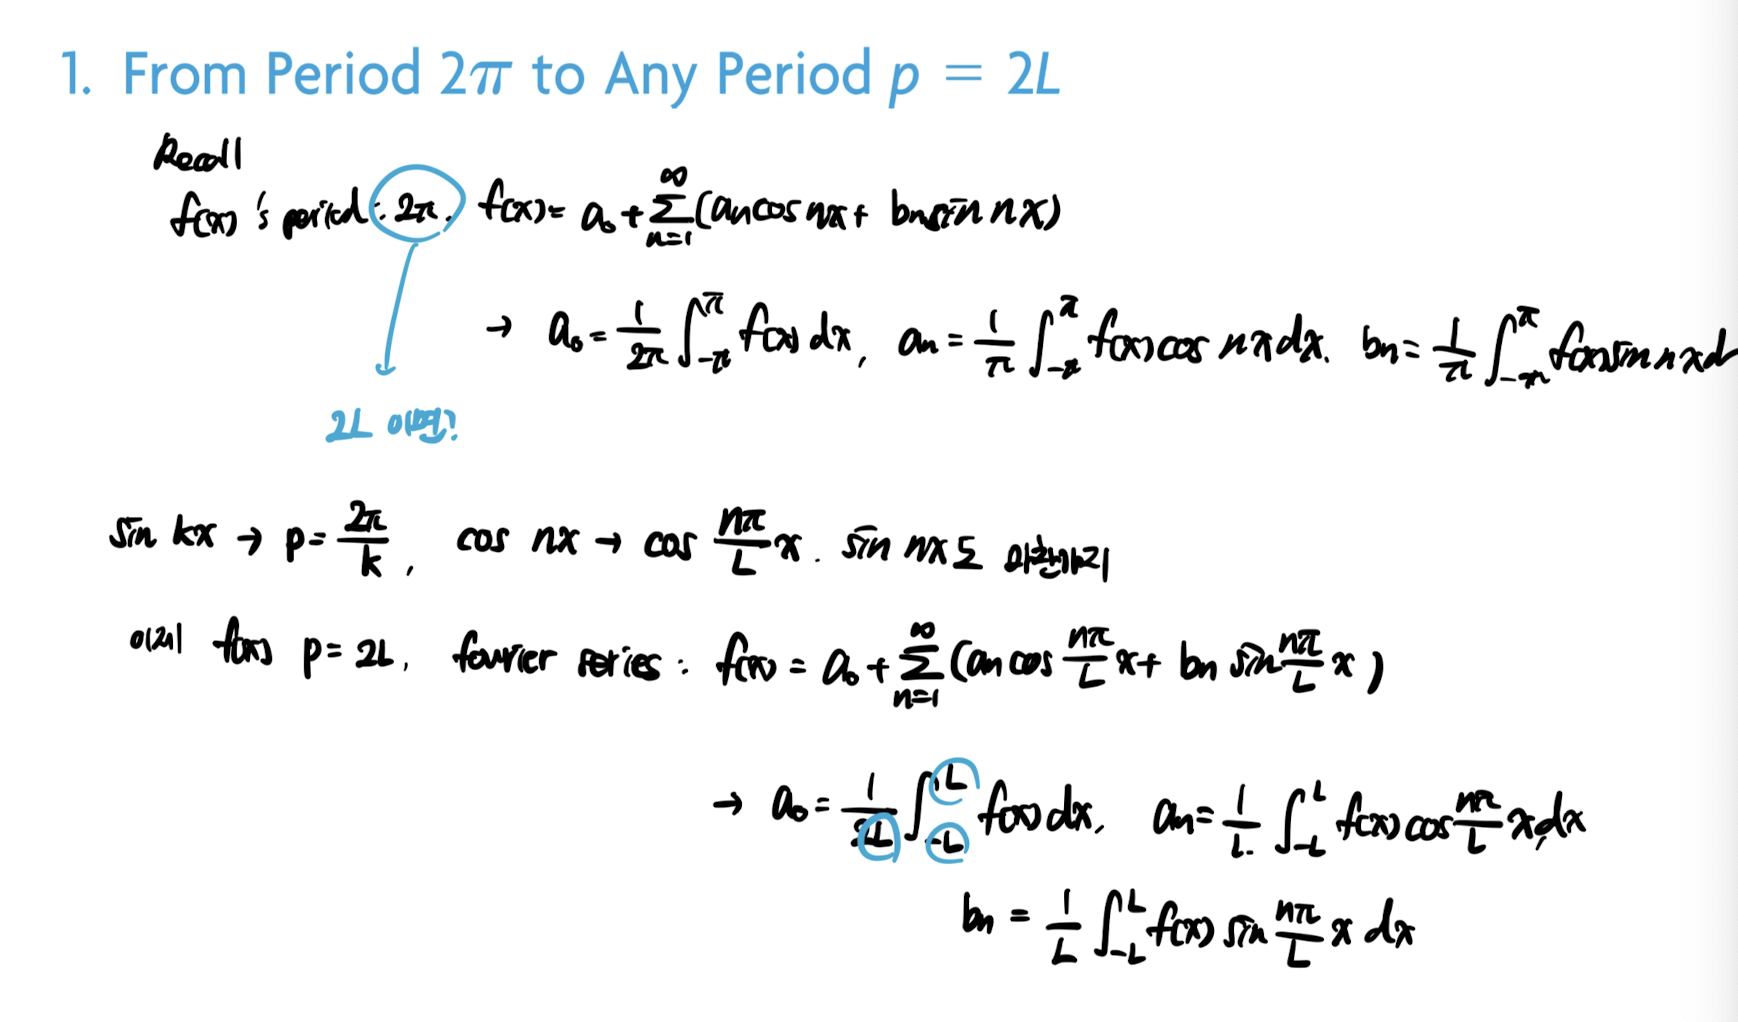 1. From Period 2π to Any Period p = 2L
Recall
f(x) 's period : 2π. f(x) = a₀ + Σ_{n=1}^{∞} (an cos nx + bn sin nx)
→ a₀ = 1/2π ∫_{-π}^{π} f(x) dx, an = 1/π ∫_{-π}^{π} f(x) cos nx dx. bn = 1/π ∫_{-π}^{π} f(x) sin nx d
2L 이면?
sin kx → p = 2π/k, cos nx → cos nπ/L x. sin nx도 마찬가지
이제 f(x) p = 2L, fourier series : f(x) = a₀ + Σ_{n=1}^{∞} (an cos nπ/L x + bn sin nπ/L x)
→ a₀ = 1/2L ∫_{-L}^{L} f(x) dx, an = 1/L ∫_{-L}^{L} f(x) cos nπ/L x dx
bn = 1/L ∫_{-L}^{L} f(x) sin nπ/L x dx